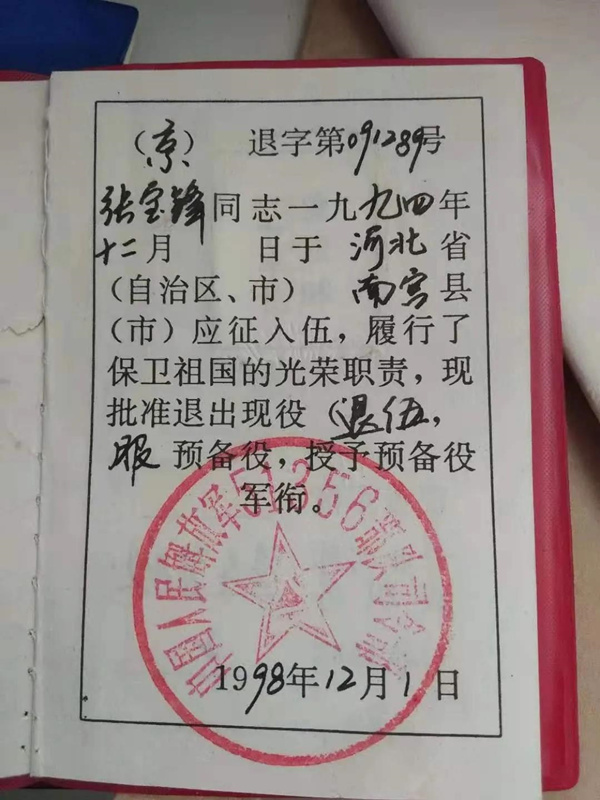 （京） 退字第091289号
张宝锋同志一九九四年
十二月 日于河北省
（自治区、市） 南宫县
（市）应征入伍，履行了
保卫祖国的光荣职责，现
批准退出现役（退伍，
服预备役，授予预备役
军衔。
中国人民解放军51356部队司令部
1998年12月1日